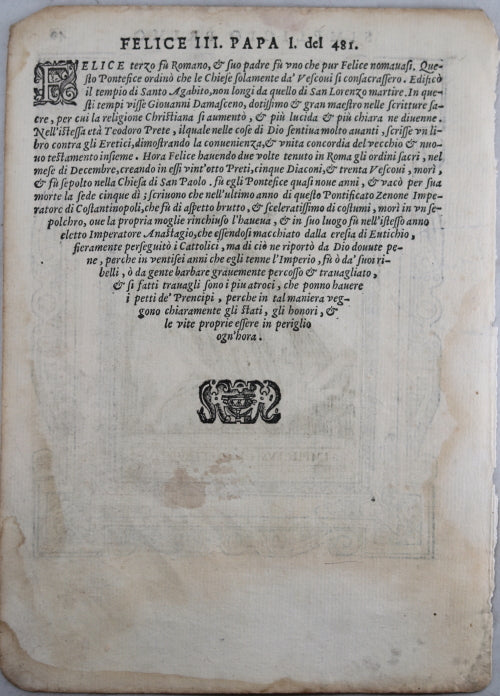 FELICE III. PAPA I. del 481.
FELICE terzo fù Romano, & suo padre fù vno che pur Felice nomauasi. Que-
sto Pontefice ordinò che le Chiese solamente da' Vescoui si consacrassero. Edificò
il tempio di Santo Agabito, non longi da quello di San Lorenzo martire. In que-
sti tempi visse Giouanni Damasceno, dotissimo & gran maestro nelle scritture sa-
cre, per cui la religione Christiana si aumento, & più lucida & più chiara ne diuenne.
Nell'istessa età Teodoro Prete, ilquale nelle cose di Dio sentiua molto auanti, scrisse vn li-
bro contra gli Eretici, dimostrando la conuenienza, & vnita concordia del vecchio & nuo-
uo testamento insieme. Hora Felice hauendo due volte tenuto in Roma gli ordini sacri, nel
mese di Decembre, creando in essi vint'otto Preti, cinque Diaconi, & trenta Vescoui, morì,
& fù sepolto nella Chiesa di San Paolo. fù egli Pontefice quasi noue anni, & vacò per sua
morte la sede cinque dì; scriuono che nell'ultimo anno di questo Pontificato Zenone Impe-
ratore di Costantinopoli, che fù di aspetto brutto, & sceleratissimo di costumi, morì in vn se-
polchro, oue la propria moglie rinchiuso l'haueua, & in suo luogo fù nell'istesso anno
eletto Imperatore Anastagio, che essendosi macchiato dalla eresia di Eutichio,
fieramente perseguitò i Cattolici, ma di ciò ne riportò da Dio douute pe-
ne, perche in ventisei anni che egli tenne l'Imperio, fù ò da' suoi ri-
belli, ò da gente barbare grauemente percosso & trauagliato,
& si fatti trauagli sono i piu atroci, che ponno hauere
i petti de' Prencipi, perche in tal maniera veg-
gono chiaramente gli stati, gli honori, &
le vite proprie essere in periglio
ogn'hora.